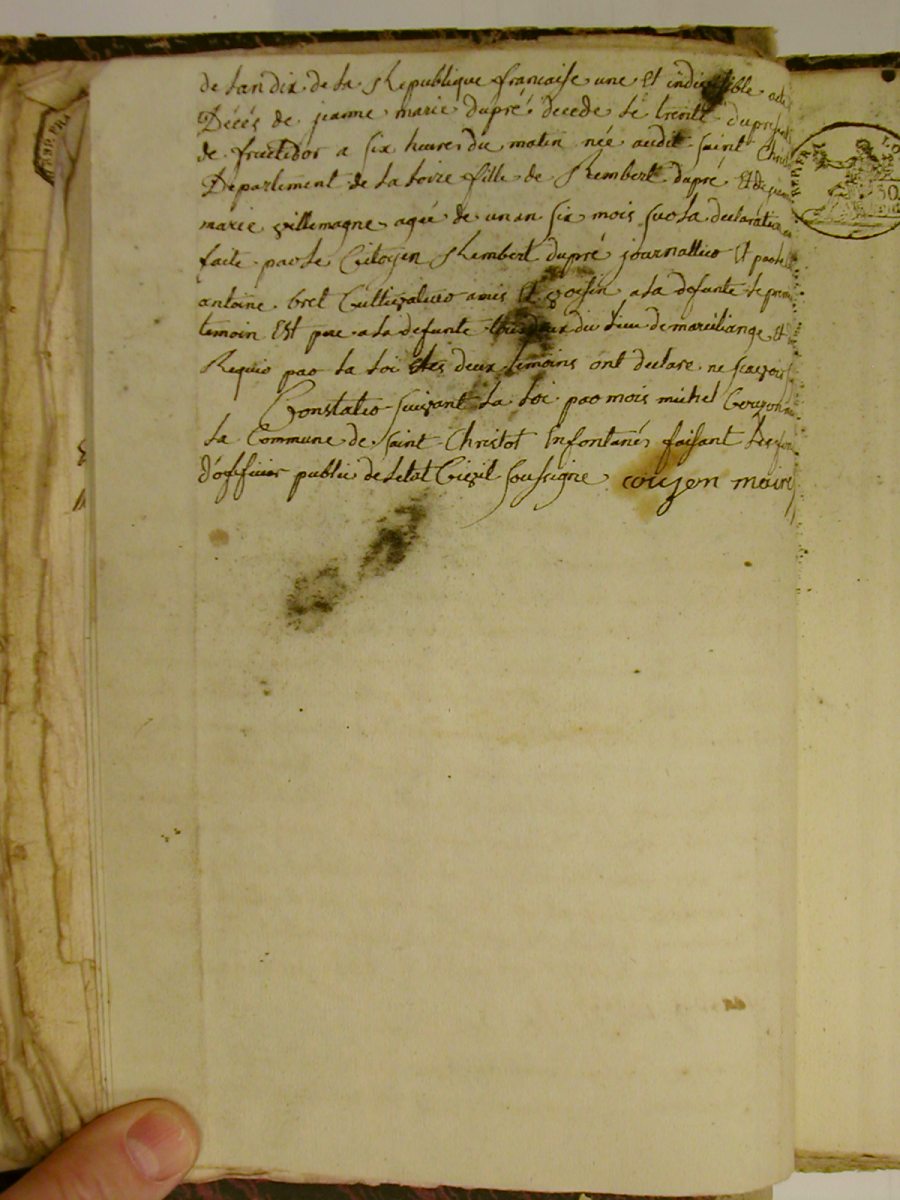 de Lan dix de La Republique francaise une Et indivisible acte
Décés de jeanne marie dupré decede Le trente du present
de fructidor a six heures du matin née audit Saint
Departement de La Loire fille de Rembert dupré Et de
marie villemagne agée de un an six mois sur La declaration
faite par Le Citoyen Rembert dupré journallier Et par Le
antoine bret Cultivateur amis Et voisin a La defunte Le
temoin Est pere a La defunte tous deux du Lieu de mareiliange Et
Requis par La Loi Et Les deux temoins ont declare ne scavoir
Constatté Suivant La Loi par mois michel
La Commune de Saint Christot En fontanés faisant Les
d'officier public de Letat Civil Soussigne couzon maire